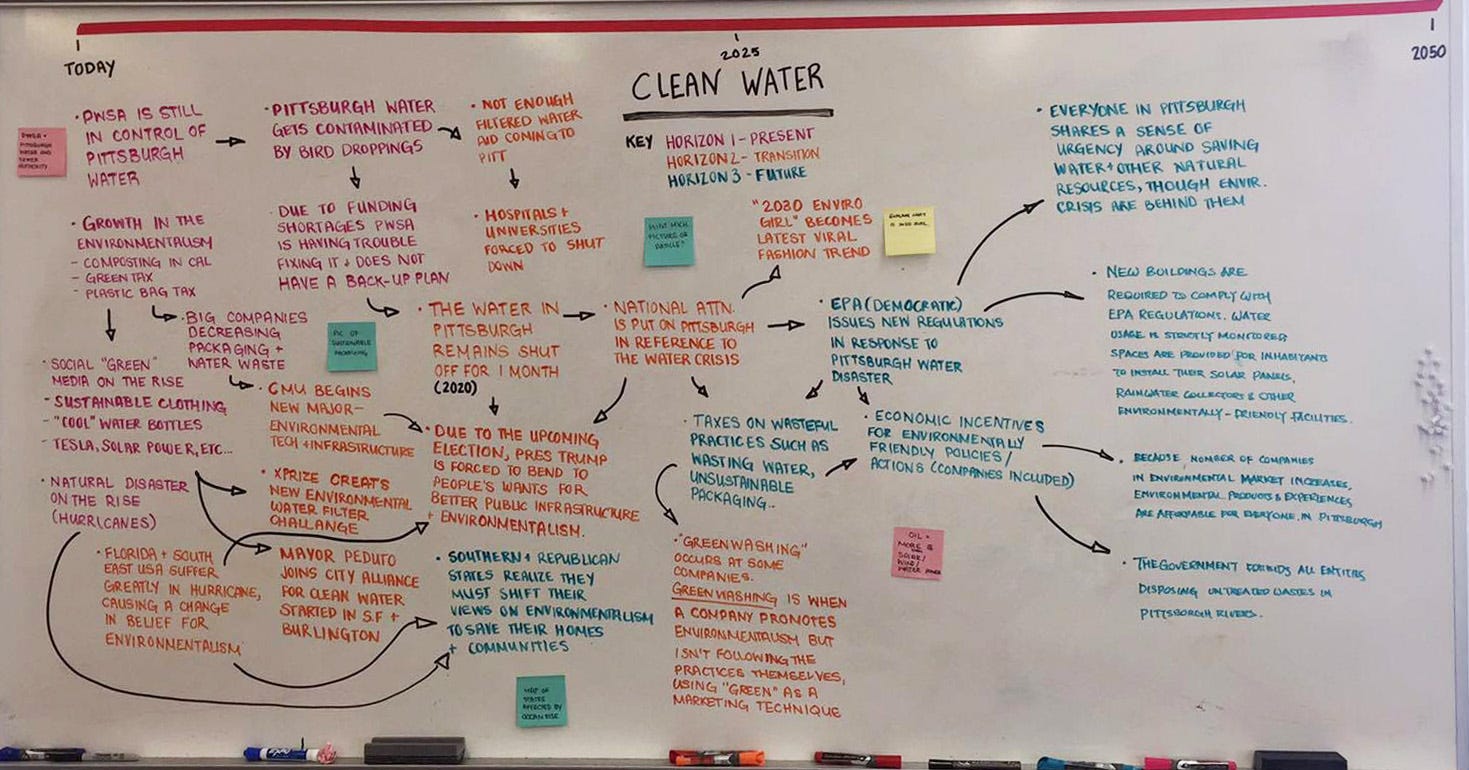 TODAY
2025
2050
CLEAN WATER
KEY HORIZON 1 - PRESENT
HORIZON 2 - TRANSITION
HORIZON 3 - FUTURE
PWSA =
PITTSBURGH
WATER AND
SEWER
AUTHORITY
· PWSA IS STILL
IN CONTROL OF
PITTSBURGH
WATER
· PITTSBURGH WATER
GETS CONTAMINATED
BY BIRD DROPPINGS
· NOT ENOUGH
FILTERED WATER
AND COMING TO
PITT
· GROWTH IN THE
ENVIRONMENTALISM
- COMPOSTING IN CAL
- GREEN TAX
- PLASTIC BAG TAX
· DUE TO FUNDING
SHORTAGES PWSA
IS HAVING TROUBLE
FIXING IT + DOES NOT
HAVE A BACK-UP PLAN
· HOSPITALS +
UNIVERSITIES
FORCED TO SHUT
DOWN
· BIG COMPANIES
DECREASING
PACKAGING +
WATER WASTE
PIC OF
SUSTAINABLE
PACKAGING
· SOCIAL "GREEN"
MEDIA ON THE RISE
- SUSTAINABLE CLOTHING
- "COOL" WATER BOTTLES
- TESLA, SOLAR POWER, ETC...
· CMU BEGINS
NEW MAJOR-
ENVIRONMENTAL
TECH + INFRASTRUCTURE
· THE WATER IN
PITTSBURGH
REMAINS SHUT
OFF FOR 1 MONTH
(2020)
· NATIONAL ATTN.
IS PUT ON PITTSBURGH
IN REFERENCE TO
THE WATER CRISIS
PICTURE OF
ARTICLE?
"2030 ENVIRO
GIRL" BECOMES
LATEST VIRAL
FASHION TREND
EXPLAIN WHAT
· EPA (DEMOCRATIC)
ISSUES NEW REGULATIONS
IN RESPONSE TO
PITTSBURGH WATER
DISASTER
· NATURAL DISASTER
ON THE RISE
(HURRICANES)
· XPRIZE CREATS
NEW ENVIRONMENTAL
WATER FILTER
CHALLANGE
· DUE TO THE UPCOMING
ELECTION, PRES TRUMP
IS FORCED TO BEND TO
PEOPLE'S WANTS FOR
BETTER PUBLIC INFRASTRUCTURE
+ ENVIRONMENTALISM.
· TAXES ON WASTEFUL
PRACTICES SUCH AS
WASTING WATER,
UNSUSTAINABLE
PACKAGING..
· ECONOMIC INCENTIVES
FOR ENVIRONMENTALLY
FRIENDLY POLICIES/
ACTIONS (COMPANIES INCLUDED)
· FLORIDA + SOUTH
EAST USA SUFFER
GREATLY IN HURRICANE,
CAUSING A CHANGE
IN BELIEF FOR
ENVIRONMENTALISM
· MAYOR PEDUTO
JOINS CITY ALLIANCE
FOR CLEAN WATER
STARTED IN S.F +
BURLINGTON
· SOUTHERN + REPUBLICAN
STATES REALIZE THEY
MUST SHIFT THEIR
VIEWS ON ENVIRONMENTALISM
TO SAVE THEIR HOMES
+ COMMUNITIES
MAP OF
STATES
AFFECTED BY
OCEAN RISE
· "GREENWASHING"
OCCURS AT SOME
COMPANIES.
GREENWASHING IS WHEN
A COMPANY PROMOTES
ENVIRONMENTALISM BUT
ISN'T FOLLOWING THE
PRACTICES THEMSELVES,
USING "GREEN" AS A
MARKETING TECHNIQUE
OIL =
MORE $
SOLAR/
WIND/
WATER POWER
· EVERYONE IN PITTSBURGH
SHARES A SENSE OF
URGENCY AROUND SAVING
WATER + OTHER NATURAL
RESOURCES, THOUGH ENVIR.
CRISIS ARE BEHIND THEM
· NEW BUILDINGS ARE
REQUIRED TO COMPLY WITH
EPA REGULATIONS. WATER
USAGE IS STRICTLY MONITORED
SPACES ARE PROVIDED FOR INHABITANTS
TO INSTALL THEIR SOLAR PANELS,
RAINWATER COLLECTORS & OTHER
ENVIRONMENTALLY-FRIENDLY FACILITIES.
· BECAUSE NUMBER OF COMPANIES
IN ENVIRONMENTAL MARKET INCREASES,
ENVIRONMENTAL PRODUCTS & EXPERIENCES
ARE AFFORDABLE FOR EVERYONE IN PITTSBURGH
· THE GOVERNMENT FORBIDS ALL ENTITIES
DISPOSING UNTREATED WASTES IN
PITTSBURGH RIVERS.
EXPO